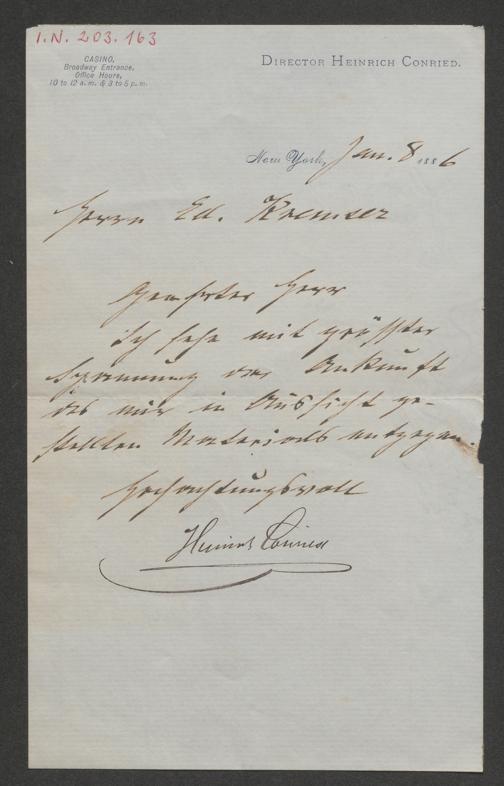 I.N. 203.163
CASINO,
Broadway Entrance,
Office Hours,
10 to 12 a.m. & 3 to 5 p.m.
DIRECTOR HEINRICH CONRIED.
New York, Jan. 8 1886
Herrn Ed. Kremser
Geehrter Herr
Ich sehe mit grösster
Spannung der Ankunft
des mir in Aussicht ge-
stellten Materials entgegen.
Hochachtungsvoll
Heinrich Conried